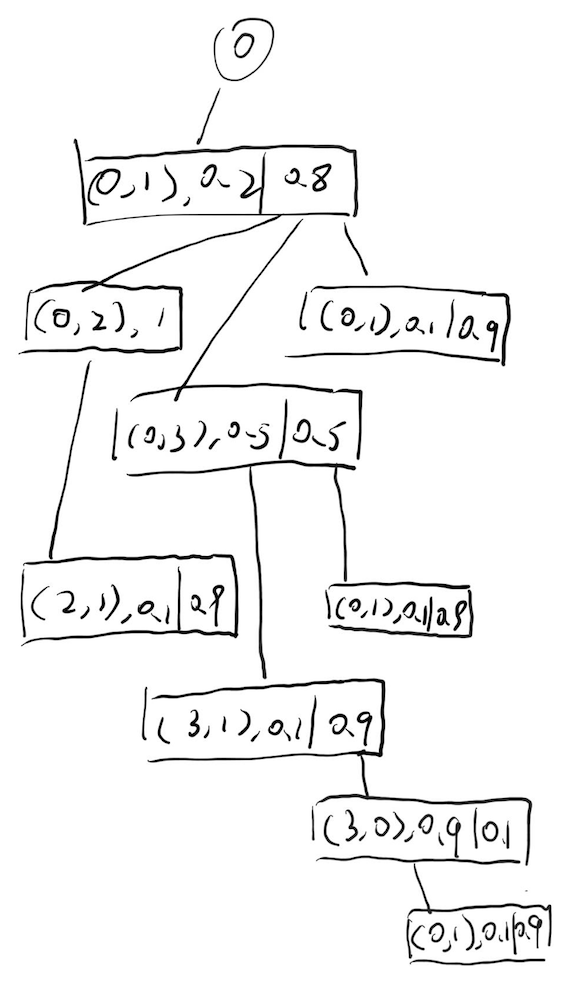 0
(0,1),0.2 | 0.8
(0,2),1
(0,1),0.1 | 0.9
(0,3),0.5 | 0.5
(2,1),0.1 | 0.9
(0,1),0.1 | 0.9
(3,1),0.1 | 0.9
(3,0),0.9 | 0.1
(0,1),0.1 | 0.9